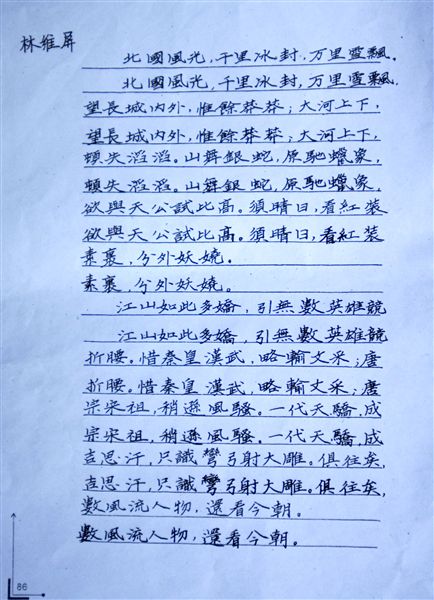 林維屏
北國風光，千里冰封，万里雪飄。
北國風光，千里冰封，万里雪飄．
望長城内外，惟餘莽莽；大河上下，
望長城内外，惟餘莽莽；大河上下，
頓失滔滔。山舞銀蛇，原馳蠟象，
頓失滔滔。山舞銀蛇，原馳蠟象，
欲與天公試比高。須晴日，看紅装
欲與天公試比高。須晴日，看紅装
素裹，分外妖嬈。
素裹，分外妖嬈。
江山如此多嬌，引無數英雄競
江山如此多嬌，引無數英雄競
折腰。惜秦皇漢武，略輸文采；唐
折腰。惜秦皇漢武，略輸文采；唐
宗宋祖，稍遜風騷。一代天驕，成
宗宋祖，稍遜風騷．一代天驕，成
吉思汗，只識彎弓射大雕。俱往矣，
吉思汗，只識彎弓射大雕。俱往矣，
數風流人物，還看今朝。
數風流人物，還看今朝。
86